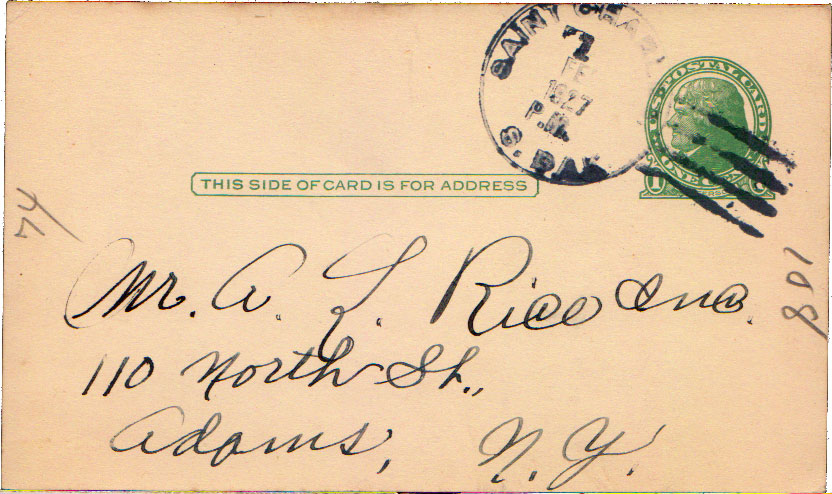 SAINT CHARL
7
FE
1927
P.M.
S. DAK
U.S. POSTAL CARD
ONE CENT
THIS SIDE OF CARD IS FOR ADDRESS
74
108
Mr. A. L. Rice Inc.
110 North St.,
Adams, N. Y.